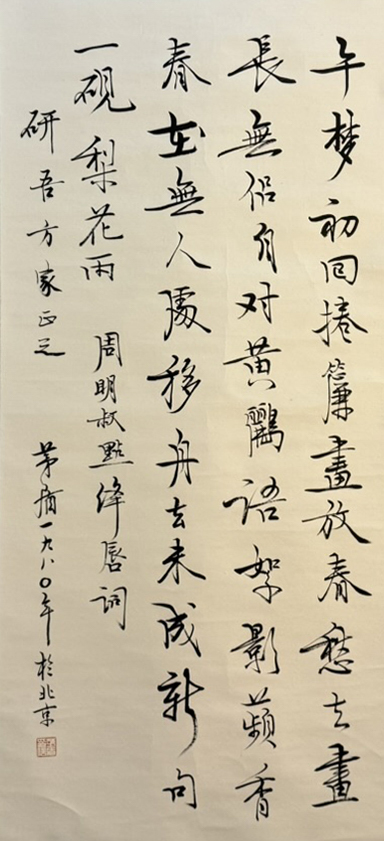 午梦初回捲簾盡放春愁去晝
長無侣自对黄鸝語絮影蘋香
春在無人處移舟去未成新句
一硯梨花雨 周明叔點绛唇词
研吾方家正之 茅盾一九八〇年於北京